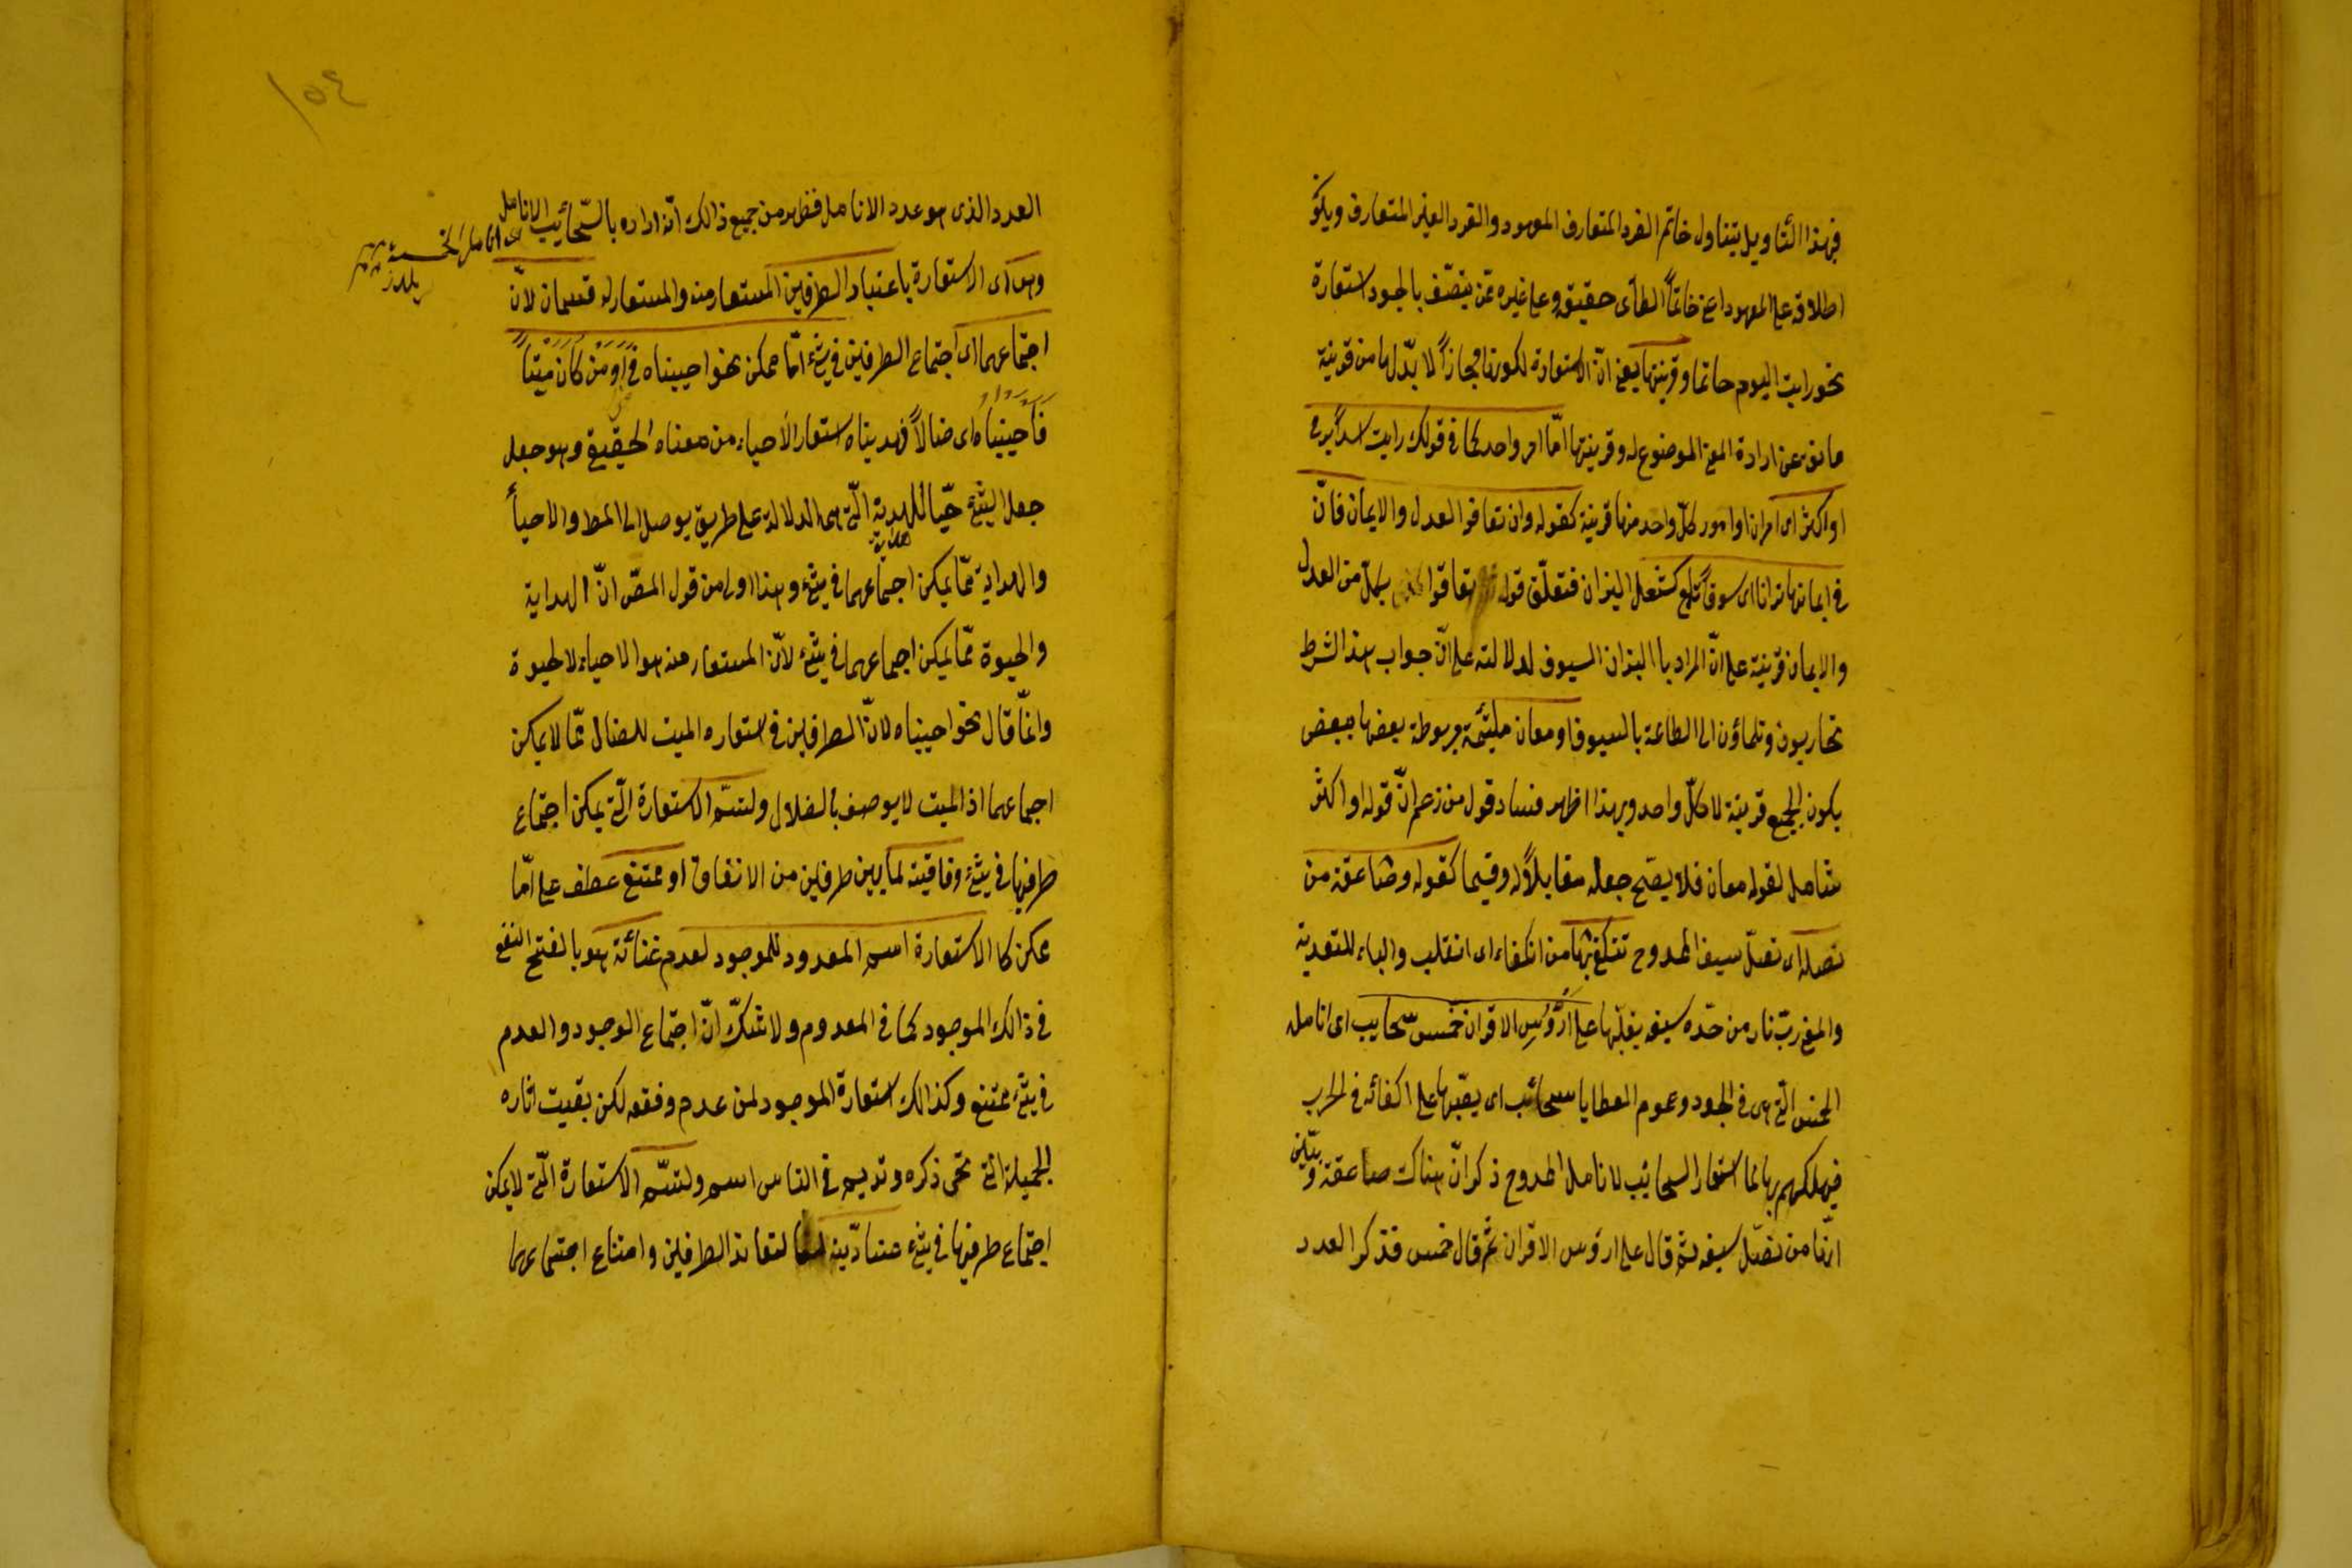 فبهذا التأويل يتناول خاتم الفرد المتعارف المعهود والفرد الغير المتعارف ويكو
اطلاقه على المعهود اعنى خاتماً الطائى حقيقة وعلى غيره ممّن يتصّف بالجود استعارة
نحو رايت اليوم حاتما وقرينتها يعنى انّ الاستعارة لكونها مجازاً لا بدّ لها من قرينة
مانعة عن ارادة المعنى الموضوع له وقرينتها امّا امر واحد كما فى قولك رايت اسداً يرمى
او اكثر اى امران او امور كلّ واحد منها قرينة كقوله وان تعافوا العدل والايمان فانّ
فى ايماننا نيرانا اى سيوفاً تلمع كشعل النيران فتعلّق قوله تعافوا بكلّ من العدل
والايمان قرينة على انّ المراد باالنيران السيوف لدلالته على انّ جواب هذا الشرط
تحاربون وتلجاؤن الى الطاعة بالسيوف او معان ملتئمة مربوطة بعضها ببعض
يكون الجميع قرينة لا كلّ واحد وبهذا اظهر فساد قول من زعم انّ قوله او اكثر
شامل لقوله معان فلا يصّح جعله مقابلاً له وقسيما كقوله وصاعقة من
نصله اى نصل سيف الممدوح تنكفى بها من انكفاء اى انقلب والباء للتعدية
والمعنى ربّ نار من حدّه سيفه يقلبها على ارؤس الاقران خمس سحايب اى انامله
الخمس الّتى هى فى الجود وعموم العطايا سحائب اى يصّبها على اكفائه فى الحرب
فيهلكهم بها لما استعار السحائب لانامل الممدوح ذكر انّ هناك صاعقة وبيّن
انّها من نصل سيفه ثم قال على ارؤس الاقران ثم قال خمس فذكر العدد
العدد الذى هو عدد الانامل فظهر من جميع ذالك انّه اراده بالسّحائب الانامل
اى انامل الخمسة
وهى اى الاستعارة باعتبار الطرفين المستعار منه والمستعار له قسمان لانّ
اجتماعهما اى اجتماع الطرفين فى شئ امّا ممكن نحو احييناه فى اومن كان ميتاً
فأحييناه اى ضالاً فهديناه استعار الأحياء من معناه الحقيقى وهو جعل
جعل الشئ حيّا للهدية الّتى هى الدلالة على طريق يوصل الى المط والاحيأ
هداية
والهداية ممّا يمكن اجتماعهما فى شئ وهذا اولى من قول المصّ انّ الهداية
والحيوة ممّا يمكن اجماعهما فى شئ لانّ المستعار منه هو الاحياء لا الحيوة
وانّما قال نحو احييناه لانّ الطرفين فى استعاره الميت للضال ممّا لا يمكن
اجماعهما اذ الميت لا يوصف بالضلال ولتسّم الاستعارة الّتى يمكن اجتماع
طرفيها فى شئ وفاقيّة لما بين طرفين من الاتفاق او ممتنع عطف على امّا
ممكن كا الاستعارة اسم المعدود للموجود لعدم غنائه هو بالفتح النفع
فى ذالك الموجود كما فى المعدوم ولا شكّ انّ اجتماع الوجود والعدم
فى شئ ممتنع وكذالك استعارة الموجود لمن عدم وفقد لكن بقيت اثاره
الجميلة الّتى تحى ذكره وتديم فى الناس اسمه ولتسّم الاستعارة الّتى لا يمكن
اجتماع طرفيها فى شئ عناديّة لتعاند الطرفين وامتناع اجتماعهما
١٥٤